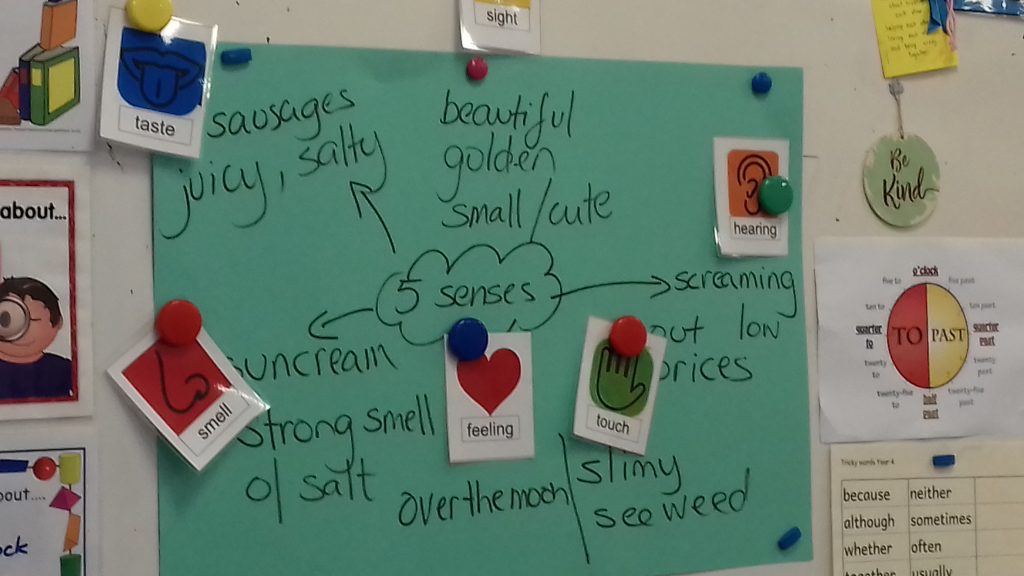 sight
taste
sausages
juicy, salty
beautiful
golden
small / cute
hearing
5 senses
screaming
out low
prices
suncream
strong smell
of salt
smell
feeling
touch
over the moon
slimy
seaweed
about...
Be
Kind
o'clock
five to
five past
ten to
ten past
quarter
to
quarter
past
TO
PAST
twenty
to
twenty
past
twenty-five
to
twenty-five
past
half
past
Tricky words Year 4
because neither
although sometimes
whether often
together usually